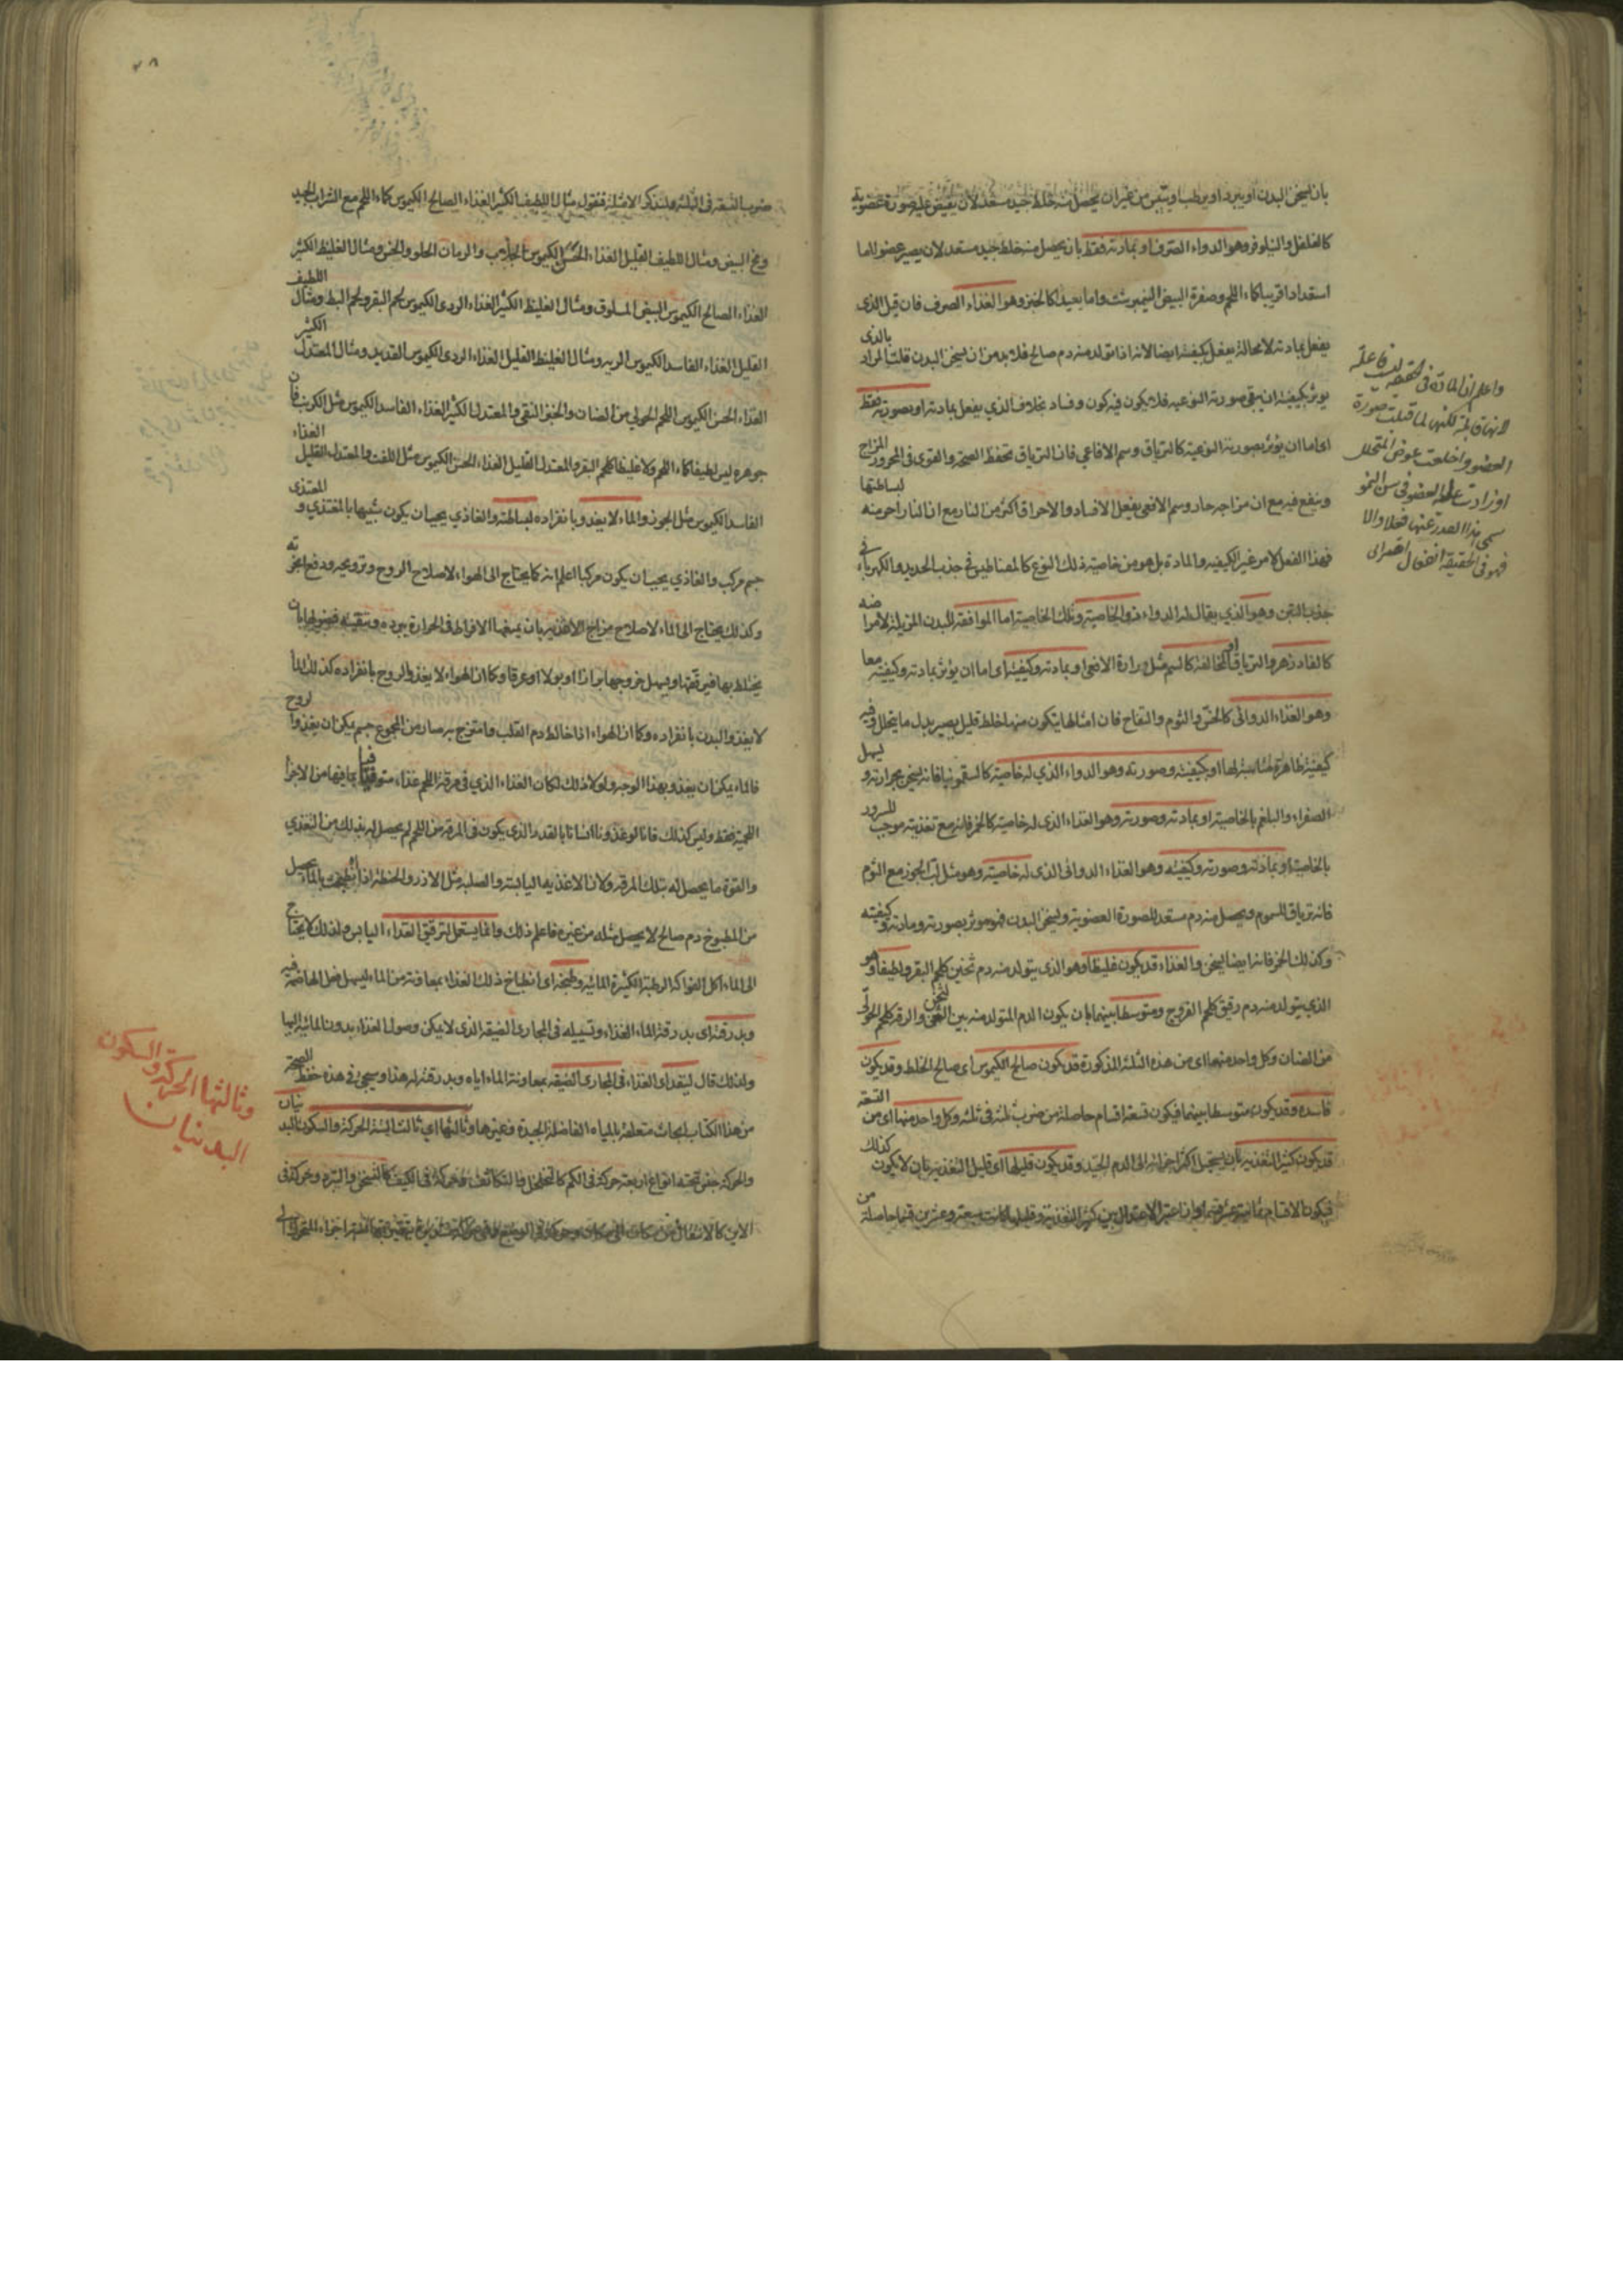 بان يسخن البدن او يبرد او يرطب او يتبس من غير ان يحصل منه خلط جيد مستعد لان يفيض عليه صورة عضوية
كالفلفل والنيلوفر وهو الدواء الصرف او بمادته فقط بان يحصل منه خلط جيد مستعد لان يصير عضوا اما
استعدادا قريبا كماء اللحم وصفرة البيض النيمبرشت واما بعيدا كالخبز وهو الغذاء الصرف فان قيل الذى
يفعل بمادته لا محالة يفعل بكيفيته ايضا لانه اذا تولد منه دم صالح فلا بد من ان يسخن البدن قلت المراد بالذى
يوثر بكيفيته ان يبقى صورته النوعيه فلا يكون فيه كون وفساد بخلاف الذي يفعل بمادته او بصورته فقط
اى اما ان يؤثر بصورته النوعيه كالترياق وسم الافاعي فان الترياق تحفظ الصحة والقوى فى المحرور المزاج
وينفع فيه مع ان مزاجه حار وسم الافعى يفعل الافساد والاحراق اكثر من النار مع ان النار احر منه لبساطتها
فهذا الفعل لامر غير الكيفيه والمادة بل هو من خاصيته ذلك النوع كالمغناطيس فى جذب الحديد والكهرباء فى
جذب التبن وهو الذي يقال له الدواء ذو الخاصية وتلك الخاصية اما الموافقة للبدن المزيلة لامراضه
كالفادزهر والترياق او المخالفة كالسم مثل مرارة الافعى او بمادته وكيفيته اى اما ان يؤثر بمادته وكيفيته معا
وهو الغذاء الدوائى كالخس والثوم والتفاح فان امثالها يتكون منها خلط قليل يصير بدل ما يتحلل وفيه
كيفية ظاهرة مناسبة لها او بكيفيته وصورته وهو الدواء الذي له خاصية كالسقمونيا فانه يسخن بحرارته و يسهل
الصفراء والبلغم بالخاصية او بمادته وصورته وهو الغذاء الذى له خاصية كالخمر فانه مع تغذيته موجب للسرور
بالخاصية او بمادته وصورته وكيفيته وهو الغذاء الدوائى الذى له خاصية وهو مثل لب الجوز مع الثوم
فانه ترياق السموم ويحصل منه دم مستعد للصورة العضوية ويسخن البدن فهو موثر بصورته ومادته وكيفيته
وكذلك الخمر فانه ايضا يسخن والغذاء قد يكون غليظا وهو الذى يتولد منه دم ثخين كلحم البقر ولطيفا وهو
الذي يتولد منه دم رقيق كلحم الفروج ومتوسطا بينهما بان يكون الدم المتولد منه بين الثخن والرقة كلحم الحولى
من الضان وكل واحد منها اى من هذه الثلثة المذكورة قد يكون صالح الكيموس اى صالح الخلط وقد يكون
فاسده وقد يكون متوسطا بينهما فيكون تسعة اقسام حاصلة من ضرب ثلثه فى ثلثه وكل واحد منها اى من التسعة
قد يكون كثير التغذيه بان يستحيل اكثر اجزائه الى الدم الجيد وقد يكون قليلها اى قليل التغذيه بان لا يكون كذلك
فيكون الاقسام ثمانية عشر قسما وان اعتبر الاعتدال بين كثير التغذية وقليلها كانت سبعة وعشرين قسما حاصلة من
واعلم ان المادة فى الحقيقه ليست فاعلة
لانها قابلة لكنها لما قبلت صورة
العضو واخلفت عوض المتحلل
او زادت على العضو فى سن النمو
سمى هذا الصدر عنها فعلا والا
فهو فى الحقيقة انفعال
ضرب التسعه فى الثلثه ولنذكر الامثلة فنقول مثال اللطيف الكثير الغذاء الصالح الكيموس كماء اللحم مع الشراب الجيد
ومخ البيض ومثال اللطيف القليل الغذاء الحسن الكيموس الجلاب والرمان الحلو والخس ومثال الغليظ الكثير
الغذاء الصالح الكيموس البيض المسلوق ومثال الغليظ الكثير الغذاء الردى الكيموس لحم البقر ولحم البط ومثال اللطيف
القليل الغذاء الفاسد الكيموس الريه ومثال الغليظ القليل الغذاء الردى الكيموس القديد ومثال المعتدل الكثير
الغذاء الحسن الكيموس اللحم الحولي من الضان والخبز النقى والمعتدل الكثير الغذاء الفاسد الكيموس مثل الكرنب فان
جوهره ليس لطيفا كماء اللحم ولا غليظا كلحم البقر والمعتدل القليل الغذاء الحسن الكيموس مثل اللفت والمعتدل القليل الغذاء
الفاسد الكيموس مثل الجوز والماء لا يغذو بانفراده لبساطته والغاذي يجب ان يكون شبيها بالمغتذي و المغتذى
جسم مركب والغاذي يجب ان يكون مركبا اعلم انه كما يحتاج الى الهواء لاصلاح الروح وترويحه ودفع ابخرته
وكذلك يحتاج الى الماء لاصلاح مزاج الاغذيه بان يمنعها الافراط فى الحرارة ببرده وتنقيته فضولها بان
يختلط بها فيرققها ويسهل خروجها برازا او بولا او عرقا وكما ان الهواء لا يغذو الروح بانفراده كذلك الماء
لا يغذو البدن بانفراده وكما ان الهواء اذا خالط دم القلب وامتزج به صار من المجموع جسم يمكن ان يغذوا الروح
فالماء يمكن ان يغذو بهذا الوجه ولولا ذلك لكان الغذاء الذي فى مرقة اللحم غذاء متوقفا بما فيها من الاجزاء
اللحمية فقط وليس كذلك فانا لو غذونا انسانا بالقدر الذى يكون فى المرقة من اللحم لم يحصل له بذلك من التغذي
والقوة ما يحصل له بتلك المرقه ولان الاغذيه اليابسة والصلبه مثل الارز والحنطة اذا طبخت بالماء يحصل
من المطبوخ دم صالح لا يحصل مثله من غيره فاعلم ذلك وانما يستعمل لترقيق الغذاء اليابس ولذلك لا يحتاج
الى الماء اكل الفواكه الرطبة الكثيرة المائيه وطبخه اى انطباخ ذلك الغذاء بمعاونة من الماء ليسهل فعل الهاضمة فيه
وبدرقته اى بدرقة الماء الغذاء وتسييله فى المجارى الضيقه الذى لا يمكن وصول الغذاء بدون المائية اليها
ولذلك قال لينفذ اى الغذاء فى المجارى الضيقه بمعاونة الماء اياه وبدرقته له هذا وسيجئ فى هذه حفظ الصحة
من هذا الكتاب ابحاث متعلقة بالمياه الفاضلة الجيدة وغيرها وثالثها اى ثالث الستة الحركة والسكون البدنيان
والحركة جنس تحته انواع اربعة حركة فى الكم كالتخلخل والتكاثف وحركة فى الكيف كالتسخن والتبرد وحركة فى
الاين كالانتقال من مكان الى مكان وحركة فى الوضع
وثالثها الحركة والسكون
البدنيان